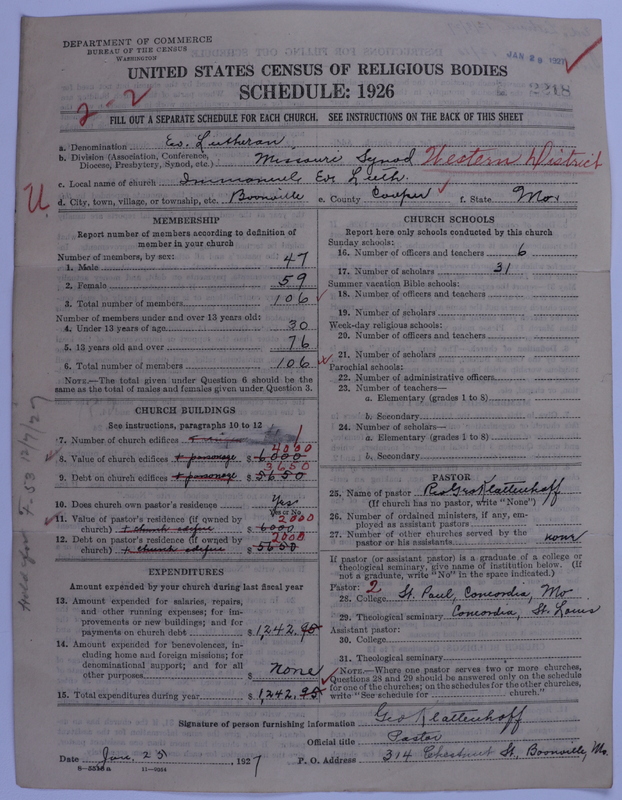 DEPARTMENT OF COMMERCE
BUREAU OF THE CENSUS
WASHINGTON
JAN 28 1927
UNITED STATES CENSUS OF RELIGIOUS BODIES
SCHEDULE: 1926
2-2
FILL OUT A SEPARATE SCHEDULE FOR EACH CHURCH. SEE INSTRUCTIONS ON THE BACK OF THIS SHEET
a. Denomination Ev. Lutheran
b. Division (Association, Conference, Diocese, Presbytery, Synod, etc.) Missouri Synod Western District
c. Local name of church Immanuel Ev. Luth.
U
d. City, town, village, or township, etc. Boonville e. County Cooper f. State Mo.
MEMBERSHIP
Report number of members according to definition of
member in your church
Number of members, by sex:
1. Male 47
2. Female 59
3. Total number of members 106
Number of members under and over 13 years old:
4. Under 13 years of age 30
5. 13 years old and over 76
6. Total number of members 106
NOTE.—The total given under Question 6 should be the
same as the total of males and females given under Question 3.
CHURCH BUILDINGS
See instructions, paragraphs 10 to 12
7. Number of church edifices 1
4000
8. Value of church edifices + parsonage $ 6000
3650
9. Debt on church edifices + parsonage $ 5650
10. Does church own pastor's residence Yes
Yes or No
11. Value of pastor's residence (if owned by 2000
church) + church edifice $ 6000
12. Debt on pastor's residence (if owned by 2000
church) + church edifice $ 5650
EXPENDITURES
Amount expended by your church during last fiscal year
13. Amount expended for salaries, repairs,
and other running expenses; for im-
provements or new buildings; and for
payments on church debt $ 1,242.95
14. Amount expended for benevolences, in-
cluding home and foreign missions; for
denominational support; and for all
other purposes $ None
15. Total expenditures during year $ 1,242.95
CHURCH SCHOOLS
Report here only schools conducted by this church
Sunday schools:
16. Number of officers and teachers 6
17. Number of scholars 31
Summer vacation Bible schools:
18. Number of officers and teachers
19. Number of scholars
Week-day religious schools:
20. Number of officers and teachers
21. Number of scholars
Parochial schools:
22. Number of administrative officers
23. Number of teachers—
a. Elementary (grades 1 to 8)
b. Secondary
24. Number of scholars—
a. Elementary (grades 1 to 8)
b. Secondary
PASTOR
25. Name of pastor Rev Geo Klattenhoff
(If church has no pastor, write "None")
26. Number of ordained ministers, if any, em-
ployed as assistant pastors
27. Number of other churches served by the
pastor or his assistants none
If pastor (or assistant pastor) is a graduate of a college or
theological seminary, give name of institution below. (If
not a graduate, write "No" in the space indicated.)
Pastor: 2
28. College St. Paul, Concordia, Mo
29. Theological seminary Concordia, St. Louis
Assistant pastor:
30. College
31. Theological seminary
NOTE.—Where one pastor serves two or more churches,
Questions 28 and 29 should be answered only on the schedule
for one of the churches; on the schedules for the other churches,
write "See schedule for church."
Signature of person furnishing information Geo Klattenhoff
Official title Pastor
Date Jan. 25, 1927 P. O. Address 314 Chestnut St, Boonville, Mo.
8-5513a 11-9264